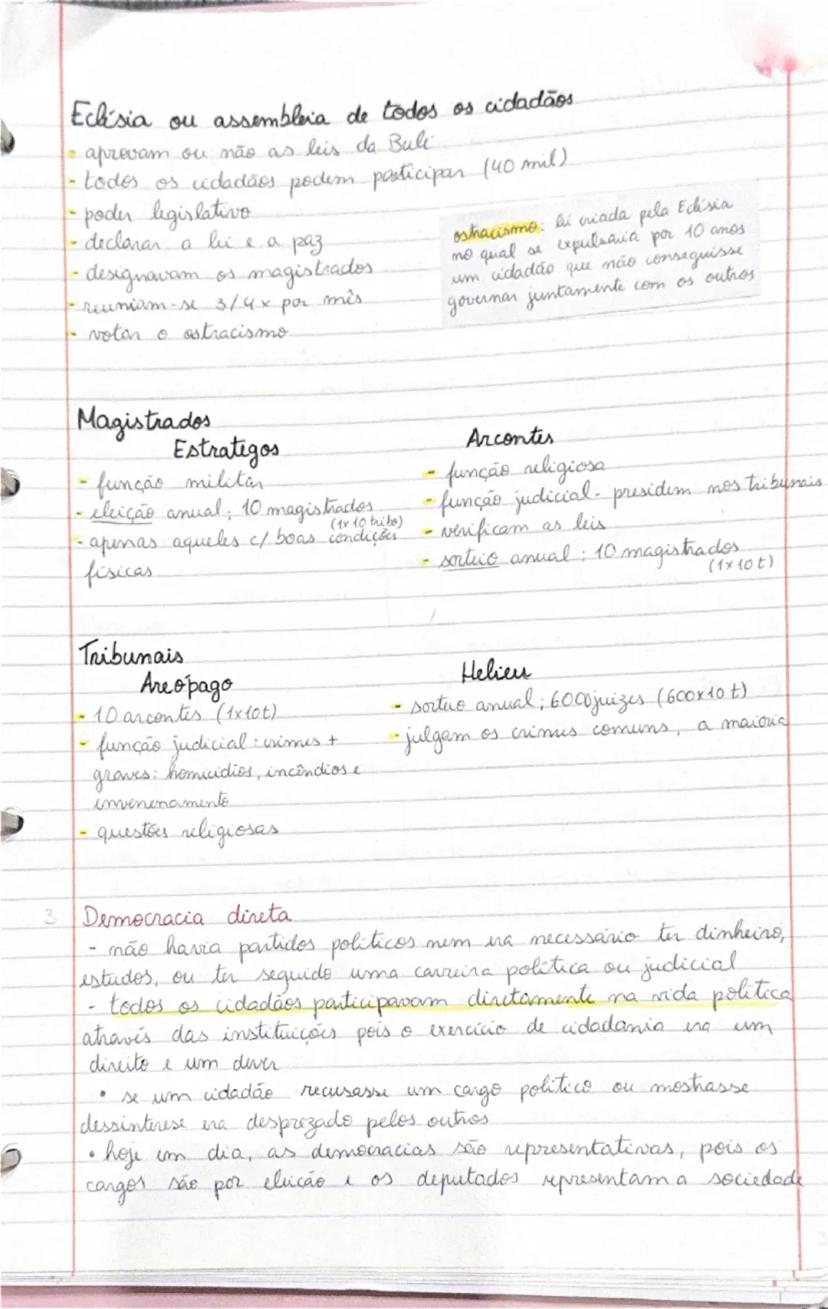 Eclésia ou assembleia de todos os cidadãos
- aprovam ou não as leis da Bulé
- todos os cidadãos podem participar (40 mil)
- poder legislativo
- declarar a lei e a paz
- designavam os magistrados
- reuniam-se 3/4x por mês
- votar o ostracismo
ostracismo: lei criada pela Eclésia
no qual se expulsaria por 10 anos
um cidadão que não conseguisse
governar juntamente com os outros
Magistrados
Estrategos
- função militar
- eleição anual; 10 magistrados
(1x10 tribo)
- apenas aqueles c/ boas condições
físicas
Arcontes
- função religiosa
- função judicial - presidem nos tribunais
- verificam as leis
- sorteio anual; 10 magistrados
(1x10t)
Tribunais
Areópago
- 10 arcontes (1x10t)
- função judicial: crimes +
graves: homicídios, incêndios e
envenenamento
- questões religiosas
Helieu
- sorteio anual; 6000 juizes (600x10t)
- julgam os crimes comuns, a maioria
3 Democracia direta
- não havia partidos politicos nem era necessário ter dinheiro,
estudos, ou ter seguido uma carreira política ou judicial
- todos os cidadãos participavam diretamente na vida política
através das instituições pois o exercício de cidadania era um
direito e um dever
• se um cidadão recusasse um cargo político ou mostrasse
dessinterese era desprezado pelos outros
• hoje em dia, as democracias são representativas, pois os
cargos são por eleição e os deputados representam a sociedade